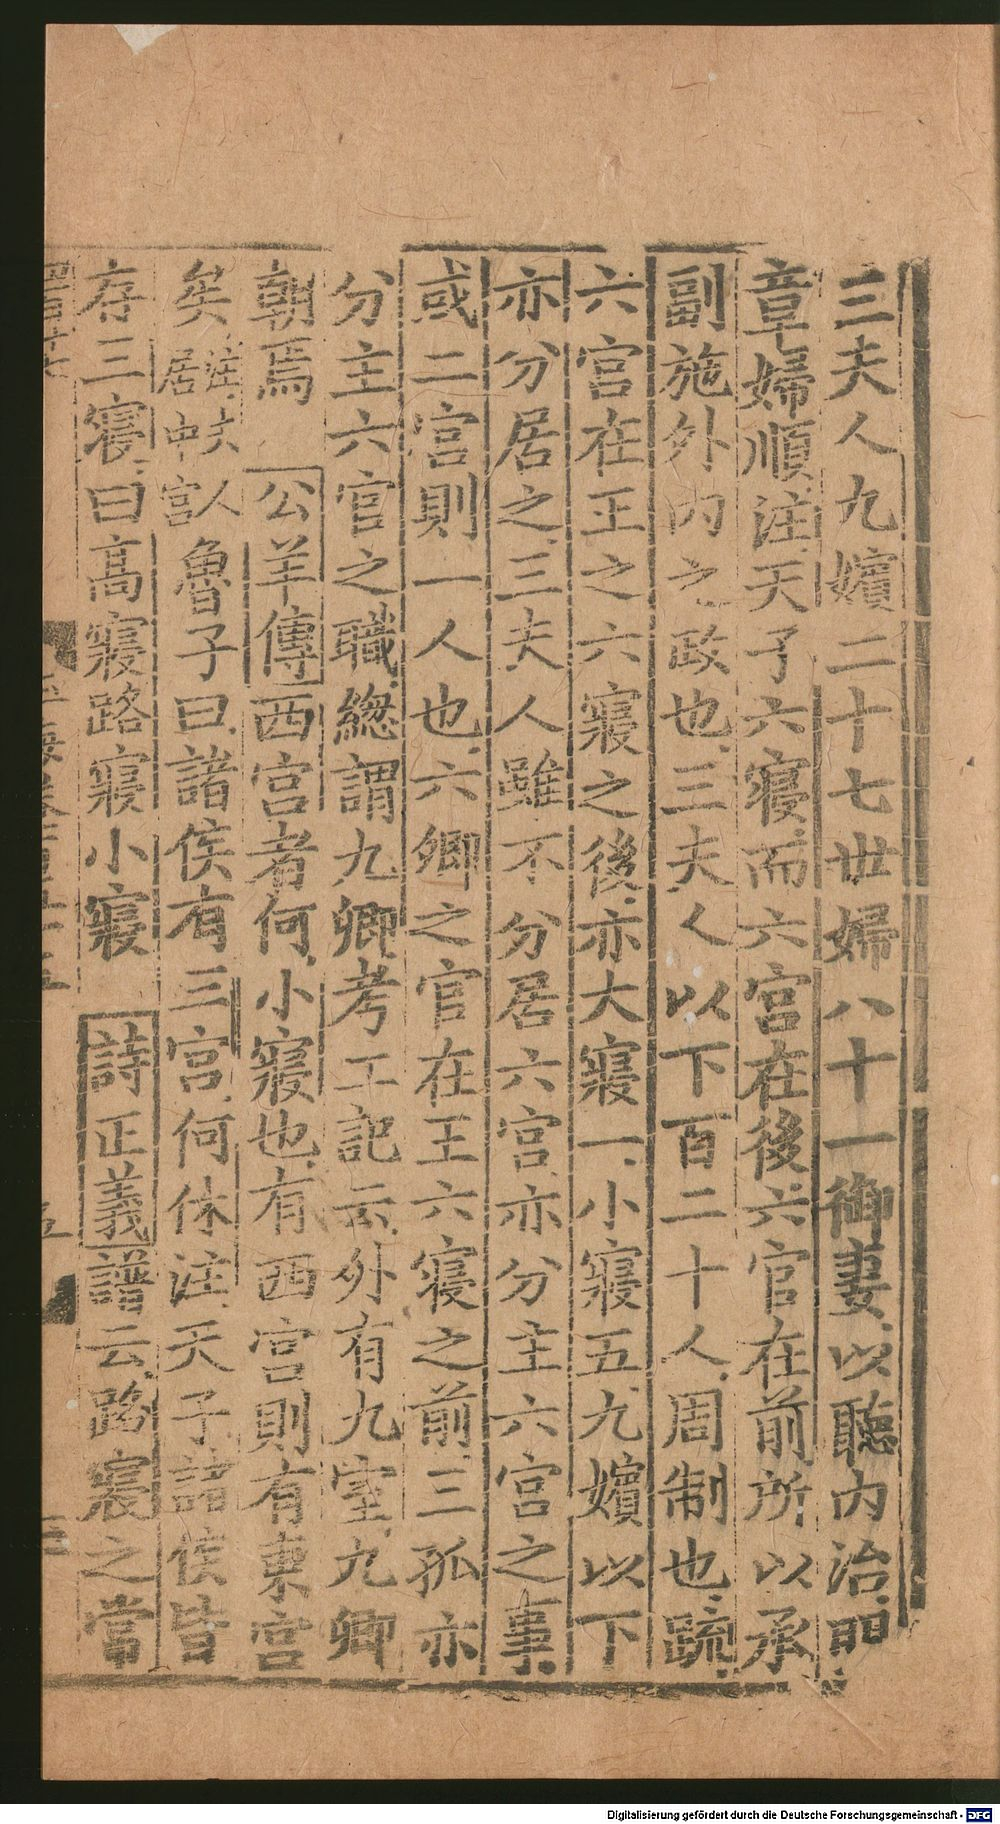 三夫人九嬪二十七世婦八十一御妻以聽內治明
章婦順注天子六寢而六宮在後六官在前所以承
副施外內之政也三夫人以下百二十人周制也疏
六宮在王之六寢之後亦大寢一小寢五九嬪以下
亦分居之三夫人雖不分居六宮亦分主六宮之事
或二宮則一人也六卿之官在王六寢之前三孤亦
分主六官之職總謂九卿考工記云外有九室九卿
朝焉 公羊傳西宮者何小寢也有西宮則有東宮
矣注夫人居中宮魯子曰諸侯有三宮何休注天子諸侯皆
存三寢曰高寢路寢小寢 詩正義譜云路寢之常
Digitalisierung gefördert durch die Deutsche Forschungsgemeinschaft - DFG